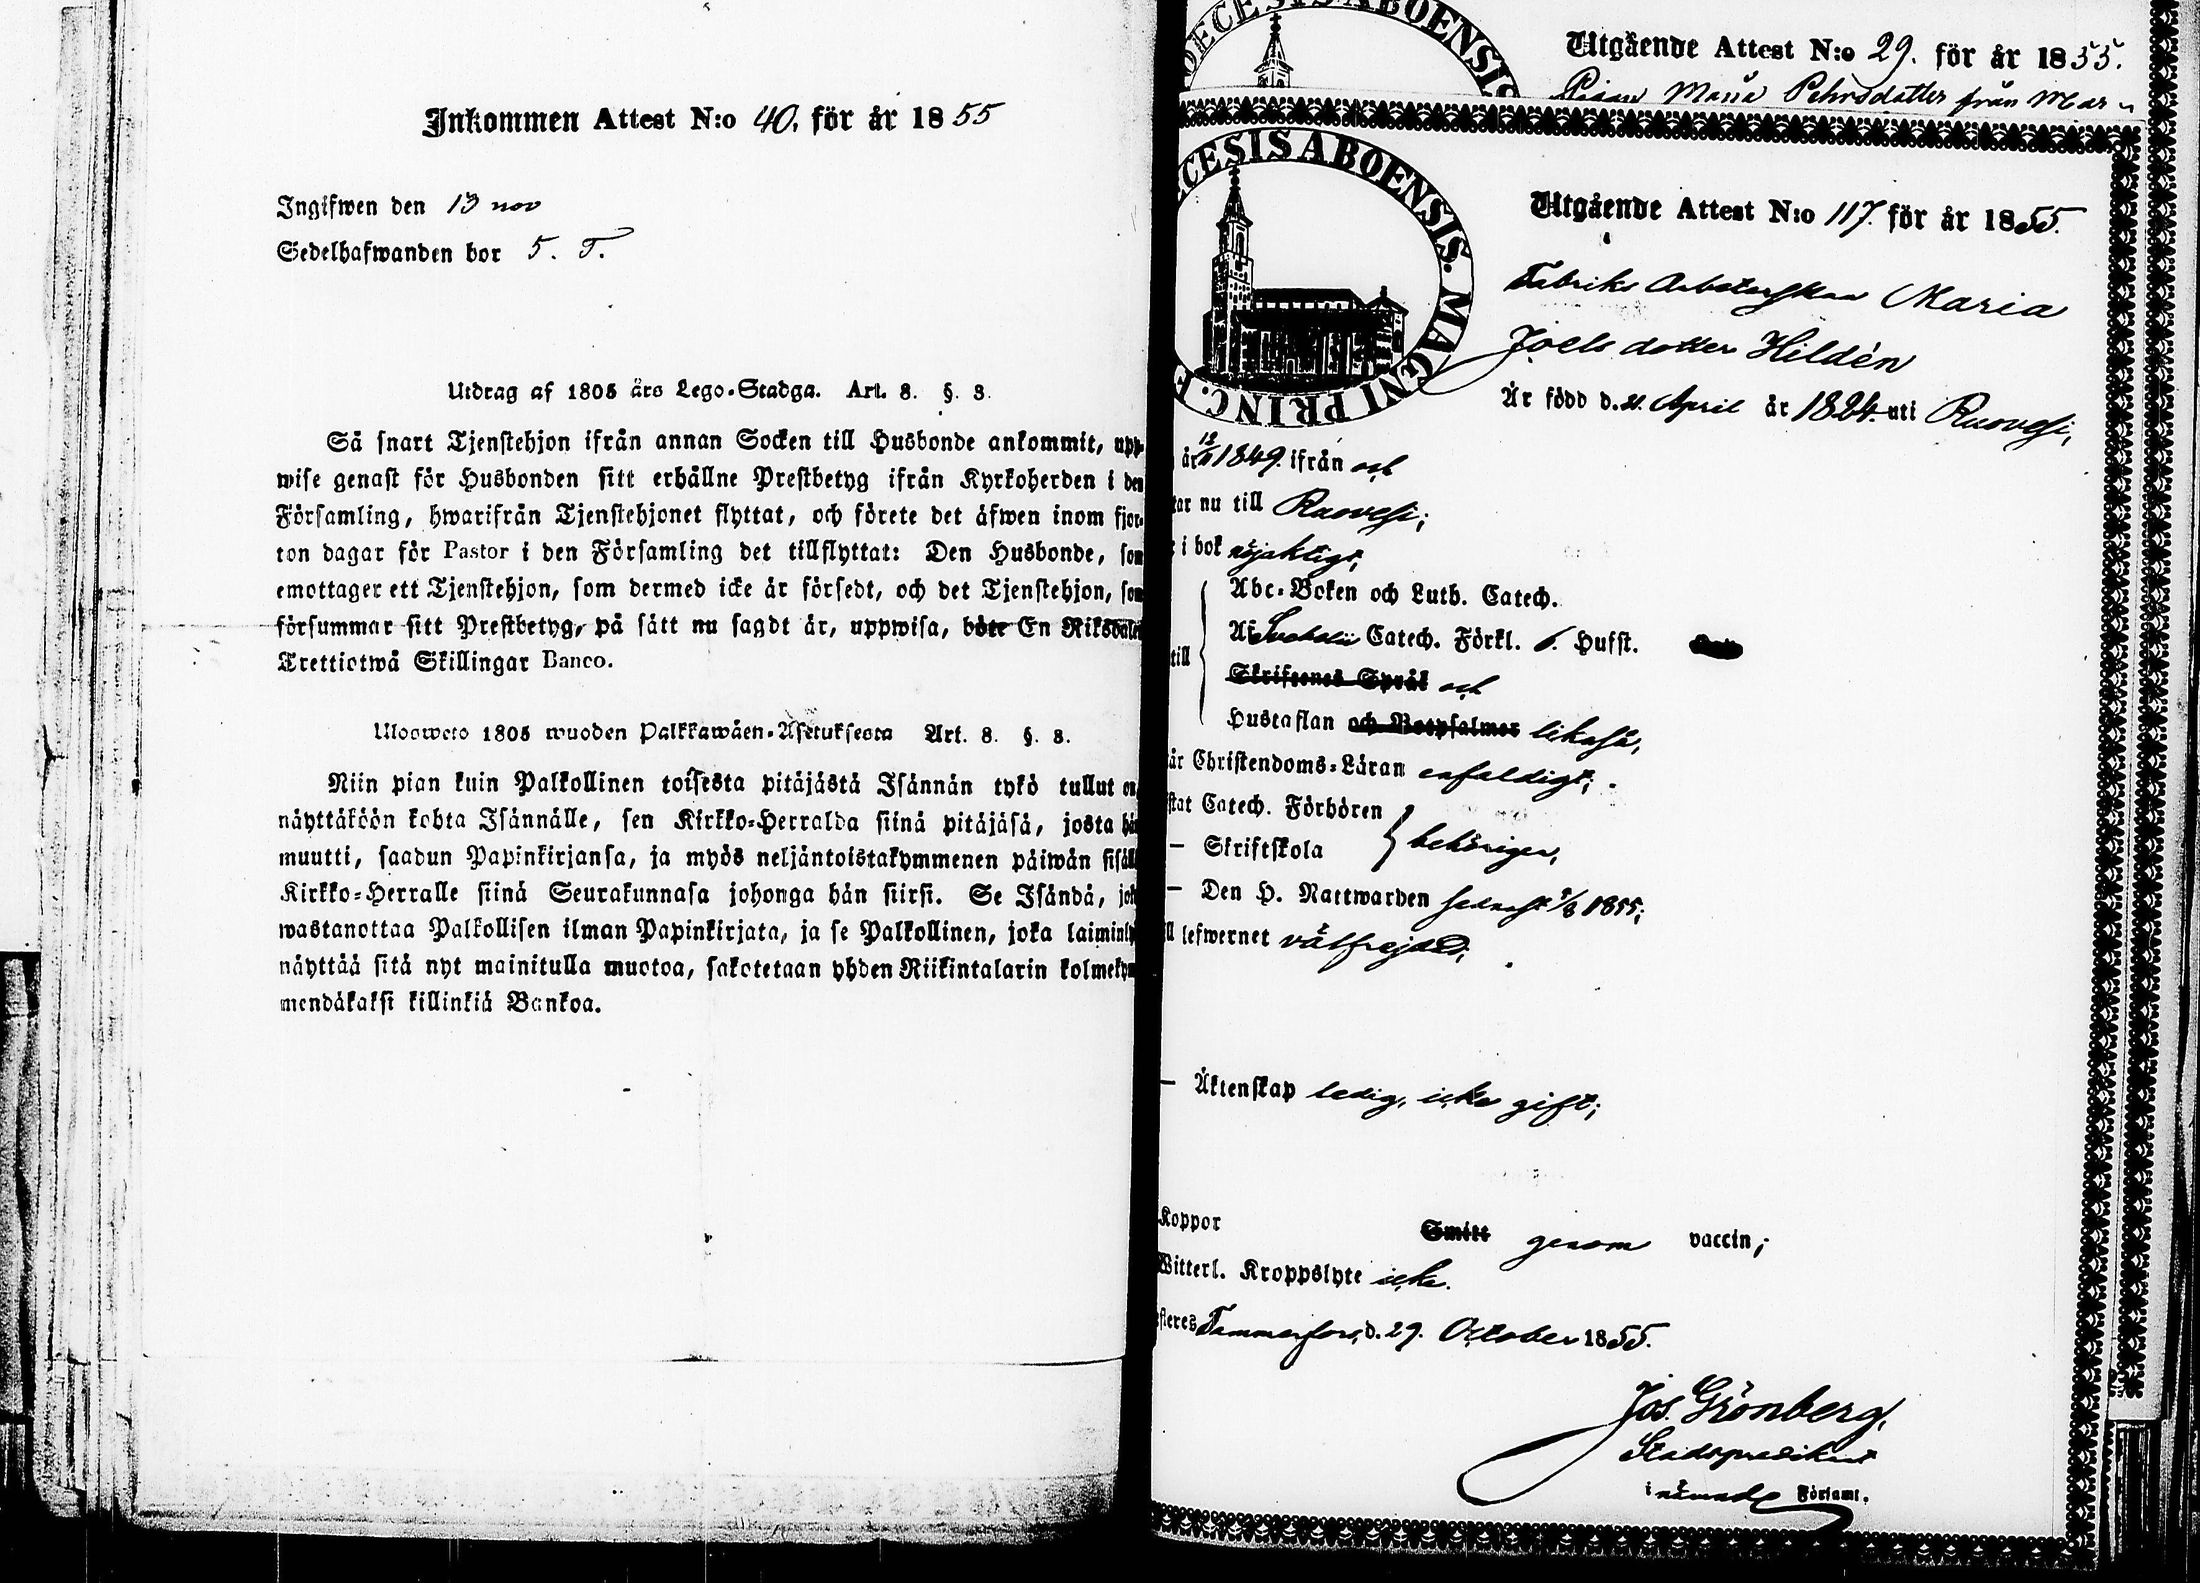 Inkommen Attest N:o 40. för år 1855
Ingifwen den 13 nov
Sedelhafwanden bor 5. T.
Utdrag af 1805 års Lego-Stadga. Art. 8. §. 3.
Så snart Tjenstehjon ifrån annan Socken till Husbonde ankommit, upp-
wise genast för Husbonden sitt erhållne Prestbetyg ifrån Kyrkoherden i den
Församling, hwarifrån Tjenstehjonet flyttat, och förete det äfwen inom fjor-
ton dagar för Pastor i den Församling det tillflyttat: Den Husbonde, som
emottager ett Tjenstehjon, som dermed icke är försedt, och det Tjenstehjon, som
försummar sitt Prestbetyg, på sätt nu sagdt är, uppwisa, böte En Riksdaler
Trettiotwå Skillingar Banco.
Ulosweto 1805 wuoden Palkkawäen-Asetuksesta Art. 8. §. 3.
Niin pian kuin Palkollinen toisesta pitäjästä Isännän tykö tullut on,
näyttäköön kohta Isännälle, sen Kirkko-Herralda siinä pitäjäsä, josta hän
muutti, saadun Papinkirjansa, ja myös neljäntoistakymmenen päiwän sisäll
Kirkko-Herralle siinä Seurakunnasa johonga hän siirsi. Se Isändä, jok
wastanottaa Palkollisen ilman Papinkirjata, ja se Palkollinen, joka laiminly
näyttää sitä nyt mainitulla muotoa, sakotetaan yhden Riikintalarin kolmekym
mendäkaksi killinkiä Bankoa.
OECESIS ABOENSIS
Utgående Attest N:o 29. för år 1855.
Pigan Maria Pehrsdotter från Mar
CESIS ABOENSIS. MAGNI PRINC. F
Utgående Attest N:o 117. för år 1855.
Fabriks Arbeterskan Maria
Joels dotter Hildén
Är född d. 21. April år 1824. uti Ruovesi,
år 1849. ifrån och
tar nu till Ruovesi;
i bok nöjaktigt,
Abc-Boken och Luth. Catech.
Af Svebelii Catech. Förkl. 6. Hufst.
till
Skriftenes Språk och
Hustaflan och Botpsalmer likaså,
är Christendoms-Läran enfaldigt;
stat Catech. Förhören
— Skriftskola } behörigen,
— Den H. Nattwarden senast 5/8 1855;
ll lefwernet välfrejdad;
— Äktenskap ledig, icke gift;
Koppor Smitt genom vaccin;
Witterl. Kroppslyte icke.
esteres Tammerfors, d. 29. October 1855.
Jos. Grönberg,
Stadspredikant
i nämnde Förfaml.